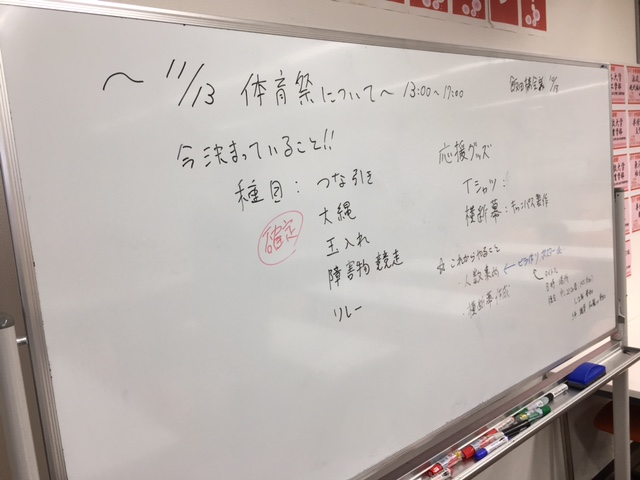 〜 11/13 体育祭について〜 13:00〜17:00
今決まっていること!!
種目：つな引き
大縄
玉入れ
障害物競走
リレー
確定
応援グッズ
Tシャツ：
横断幕：キャンパス製作
☆これからやること
・人数集め ←
・横断幕作成